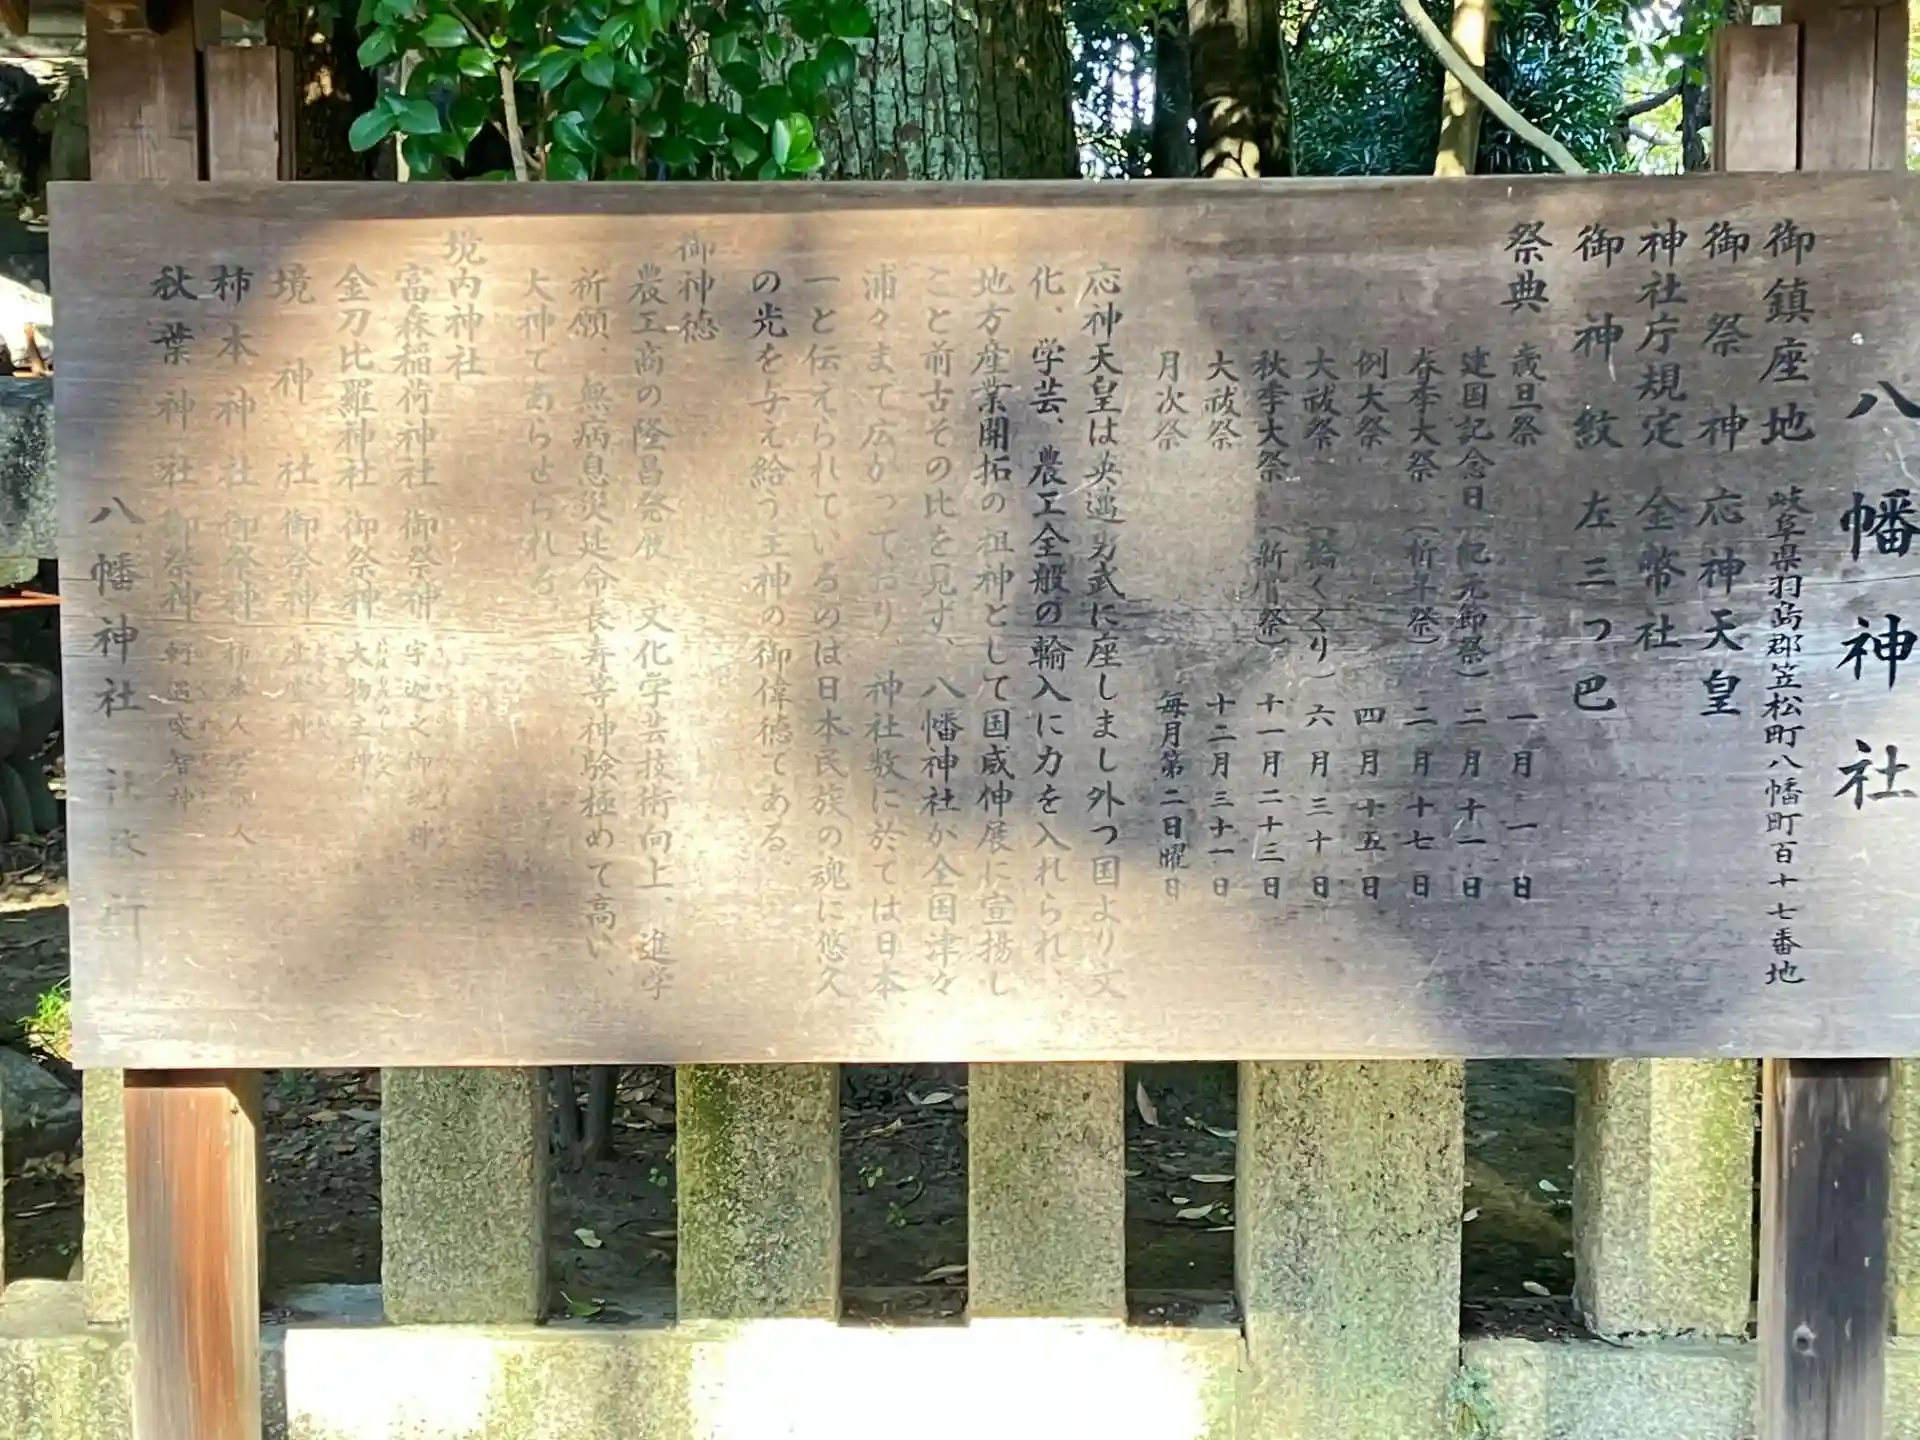 八幡神社
御鎮座地 岐阜県羽島郡笠松町八幡町百十七番地
御祭神 応神天皇
神社庁規定 金幣社
御神紋 左三つ巴
祭典 歳旦祭 一月一日
建国記念日(紀元節祭) 二月十一日
春季大祭(祈年祭) 二月十七日
例大祭 四月十五日
大祓祭(輪くぐり) 六月三十日
秋季大祭(新嘗祭) 十一月二十三日
大祓祭 十二月三十一日
月次祭 毎月第二日曜日
応神天皇は英邁勇武に座しまし外つ国より文
化、学芸、農工全般の輸入に力を入れられ、
地方産業開拓の祖神として国威伸展に宣揚し
こと前古その比を見ず、八幡神社が全国津々
浦々まで広がっており、神社数に於ては日本
一と伝えられているのは日本民族の魂に悠久
の光を与え給う主神の御偉徳である
御神徳
農工商の隆昌発展、文化学芸技術向上、進学
祈願、無病息災延命長寿等神験極めて高い、
大神であらせられる。
境内神社
富森稲荷神社 御祭神 宇迦之御魂神
金刀比羅神社 御祭神 大物主神
境神社 御祭神
柿本神社 御祭神 柿本人
秋葉神社 御祭神 軻遇突智神
八幡神社